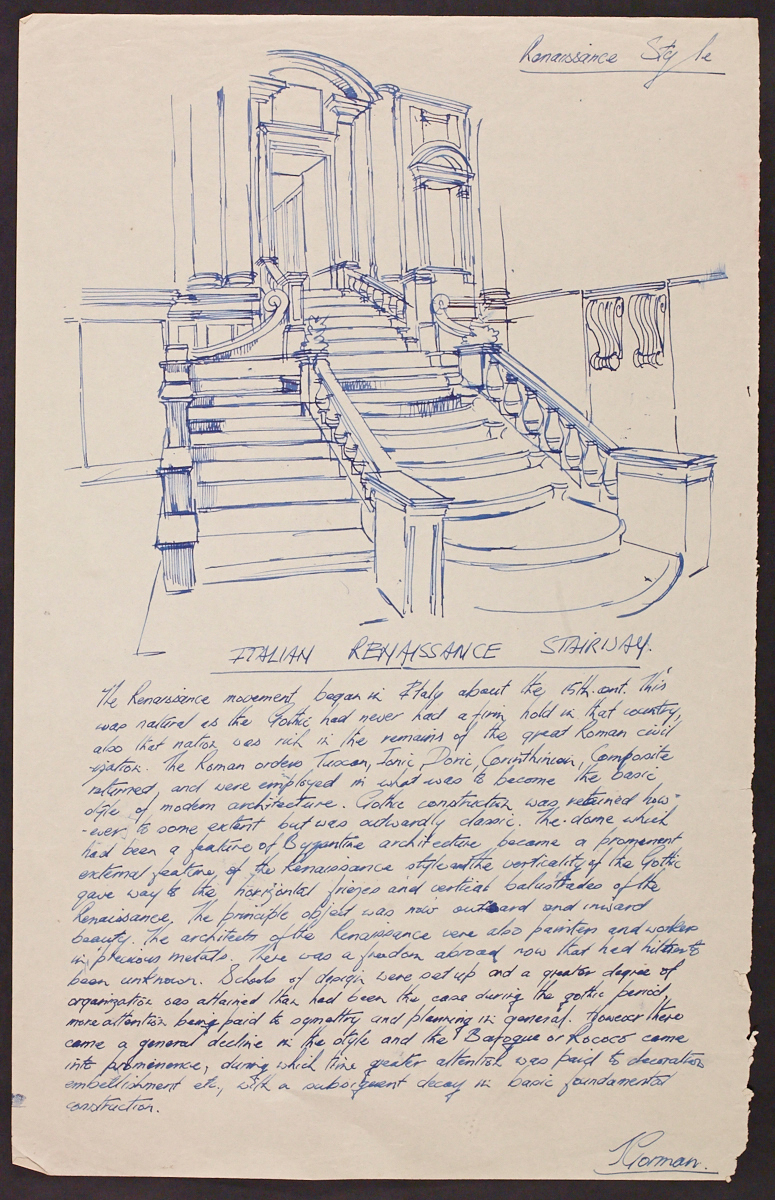 Renaissance Style
ITALIAN RENAISSANCE STAIRWAY.
The Renaissance movement, began in Italy about the 15th. cent. This
was natural as the Gothic had never had a firm hold in that country,
also that nation was rich in the remains of the great Roman civil
-ization. The Roman orders Tuscan, Ionic, Doric, Corinthinian, Composite
returned, and were employed in what was to become the basic
style of modern architecture. Gothic construction was retained how-
-ever, to some extent but was outwardly classic. The dome which
had been a feature of Byzantine architecture, became a prominent
external feature, of the Renaissance style and the verticality of the Gothic
gave way to the horizontal friezes and vertical balustrades of the
Renaissance. The principle object was now outward and inward
beauty. The architects of the Renaissance were also painters and workers
in precious metals. There was a freedom abroad now that had hitherto
been unknown. Schools of design were set up and a greater degree of
organization was attained than had been the case during the gothic period,
more attention being paid to symettry and planning in general. However there
came a general decline in the style and the Baroque or Rococo came
into prominence, during which time greater attention was paid to decoration
embellishment etc., with a subsequent decay in basic fundamental
construction.
JGorman.